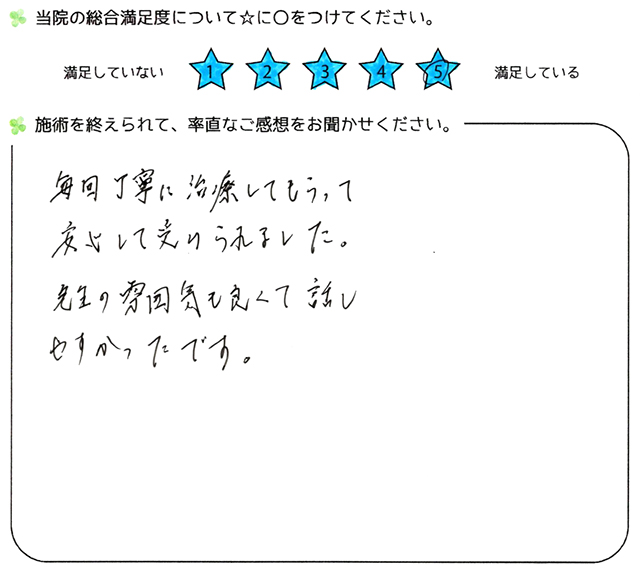 当院の総合満足度について☆に〇をつけてください。
満足していない 1 2 3 4 5 満足している
施術を終えられて、率直なご感想をお聞かせください。
毎回丁寧に治療してもらって
安心して受けられました。
先生の雰囲気も良くて話し
やすかったです。